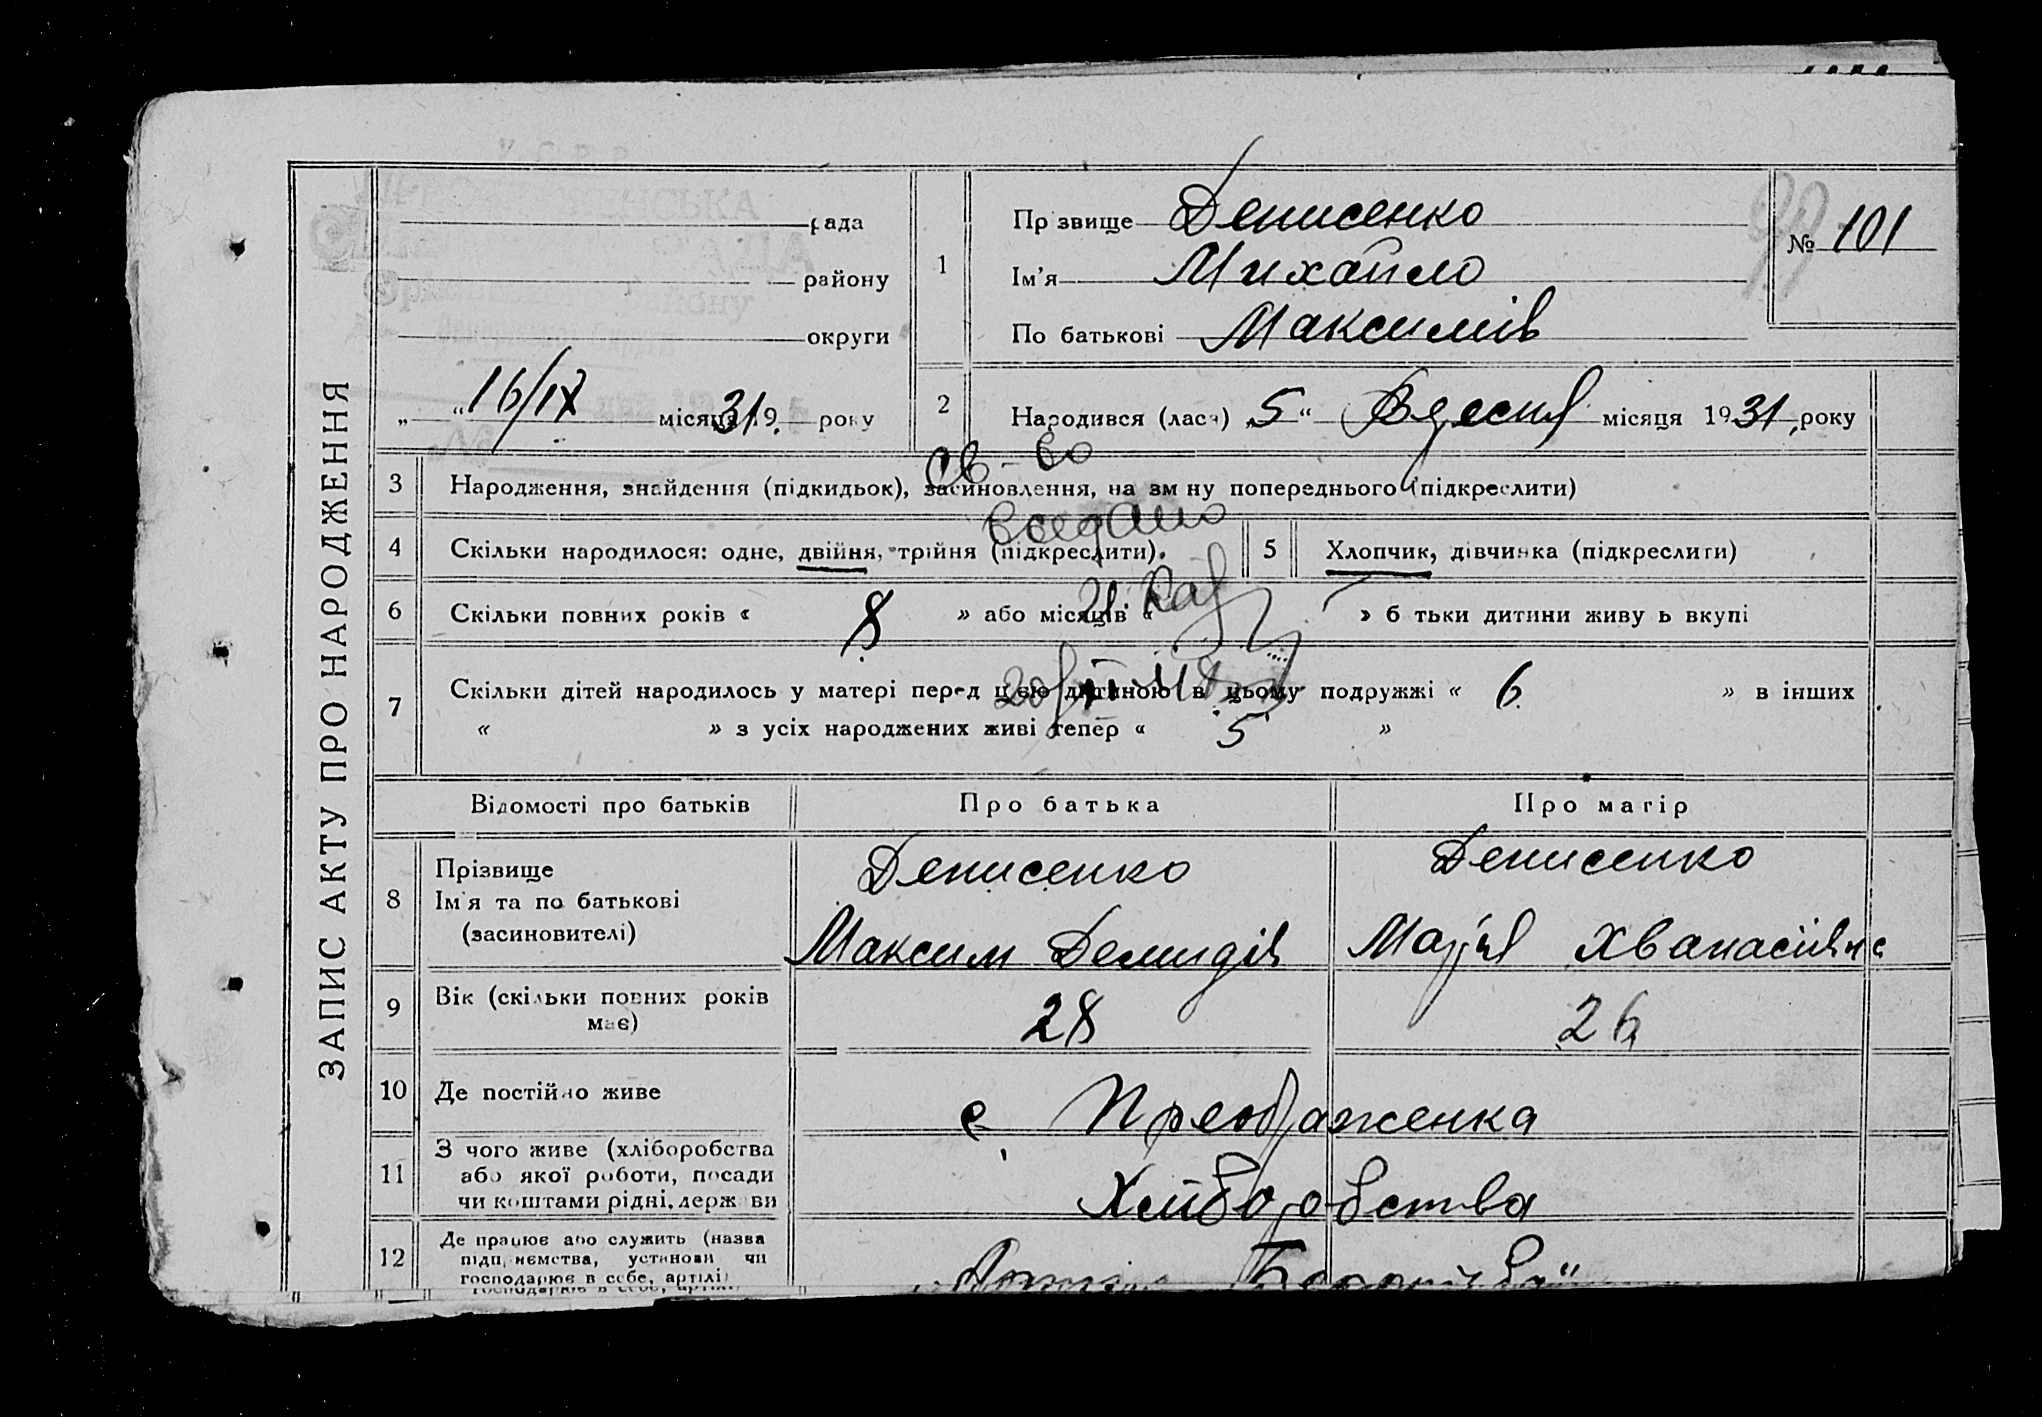 ЗАПИС АКТУ ПРО НАРОДЖЕННЯ
рада
району
округи
„ “ 16/IX місяця 31 19 року
1
Прізвище Денисенко
Ім’я Михайло
По батькові Максимів
№ 101
2 Народився (лася) „5“ Вересня місяця 1931 року
Св-во
3 Народження, знайдення (підкидьок), засиновлення, на зміну попереднього (підкреслити)
4 Скільки народилося: одне, двійня, трійня (підкреслити).
5 Хлопчик, дівчинка (підкреслити)
6 Скільки повних років « 8 » або місяців « » батьки дитини живуть вкупі
7 Скільки дітей народилось у матері перед цією дитиною в цьому подружжі « 6 » в інших
« » з усіх народжених живі тепер « 5 »
Відомості про батьків Про батька Про матір
8 Прізвище
Ім’я та по батькові
(засиновителі)
Денисенко
Максим Демидів
Денисенко
Марія Хванасіївна
9 Вік (скільки повних років
має)
28
26
10 Де постійно живе
с. Преображенка
11 З чого живе (хліборобства
або якої роботи, посади
чи коштами рідні, держави
Хліборобства
12 Де працює або служить (назва
підприємства, установи чи
господарює в себе, артілі)